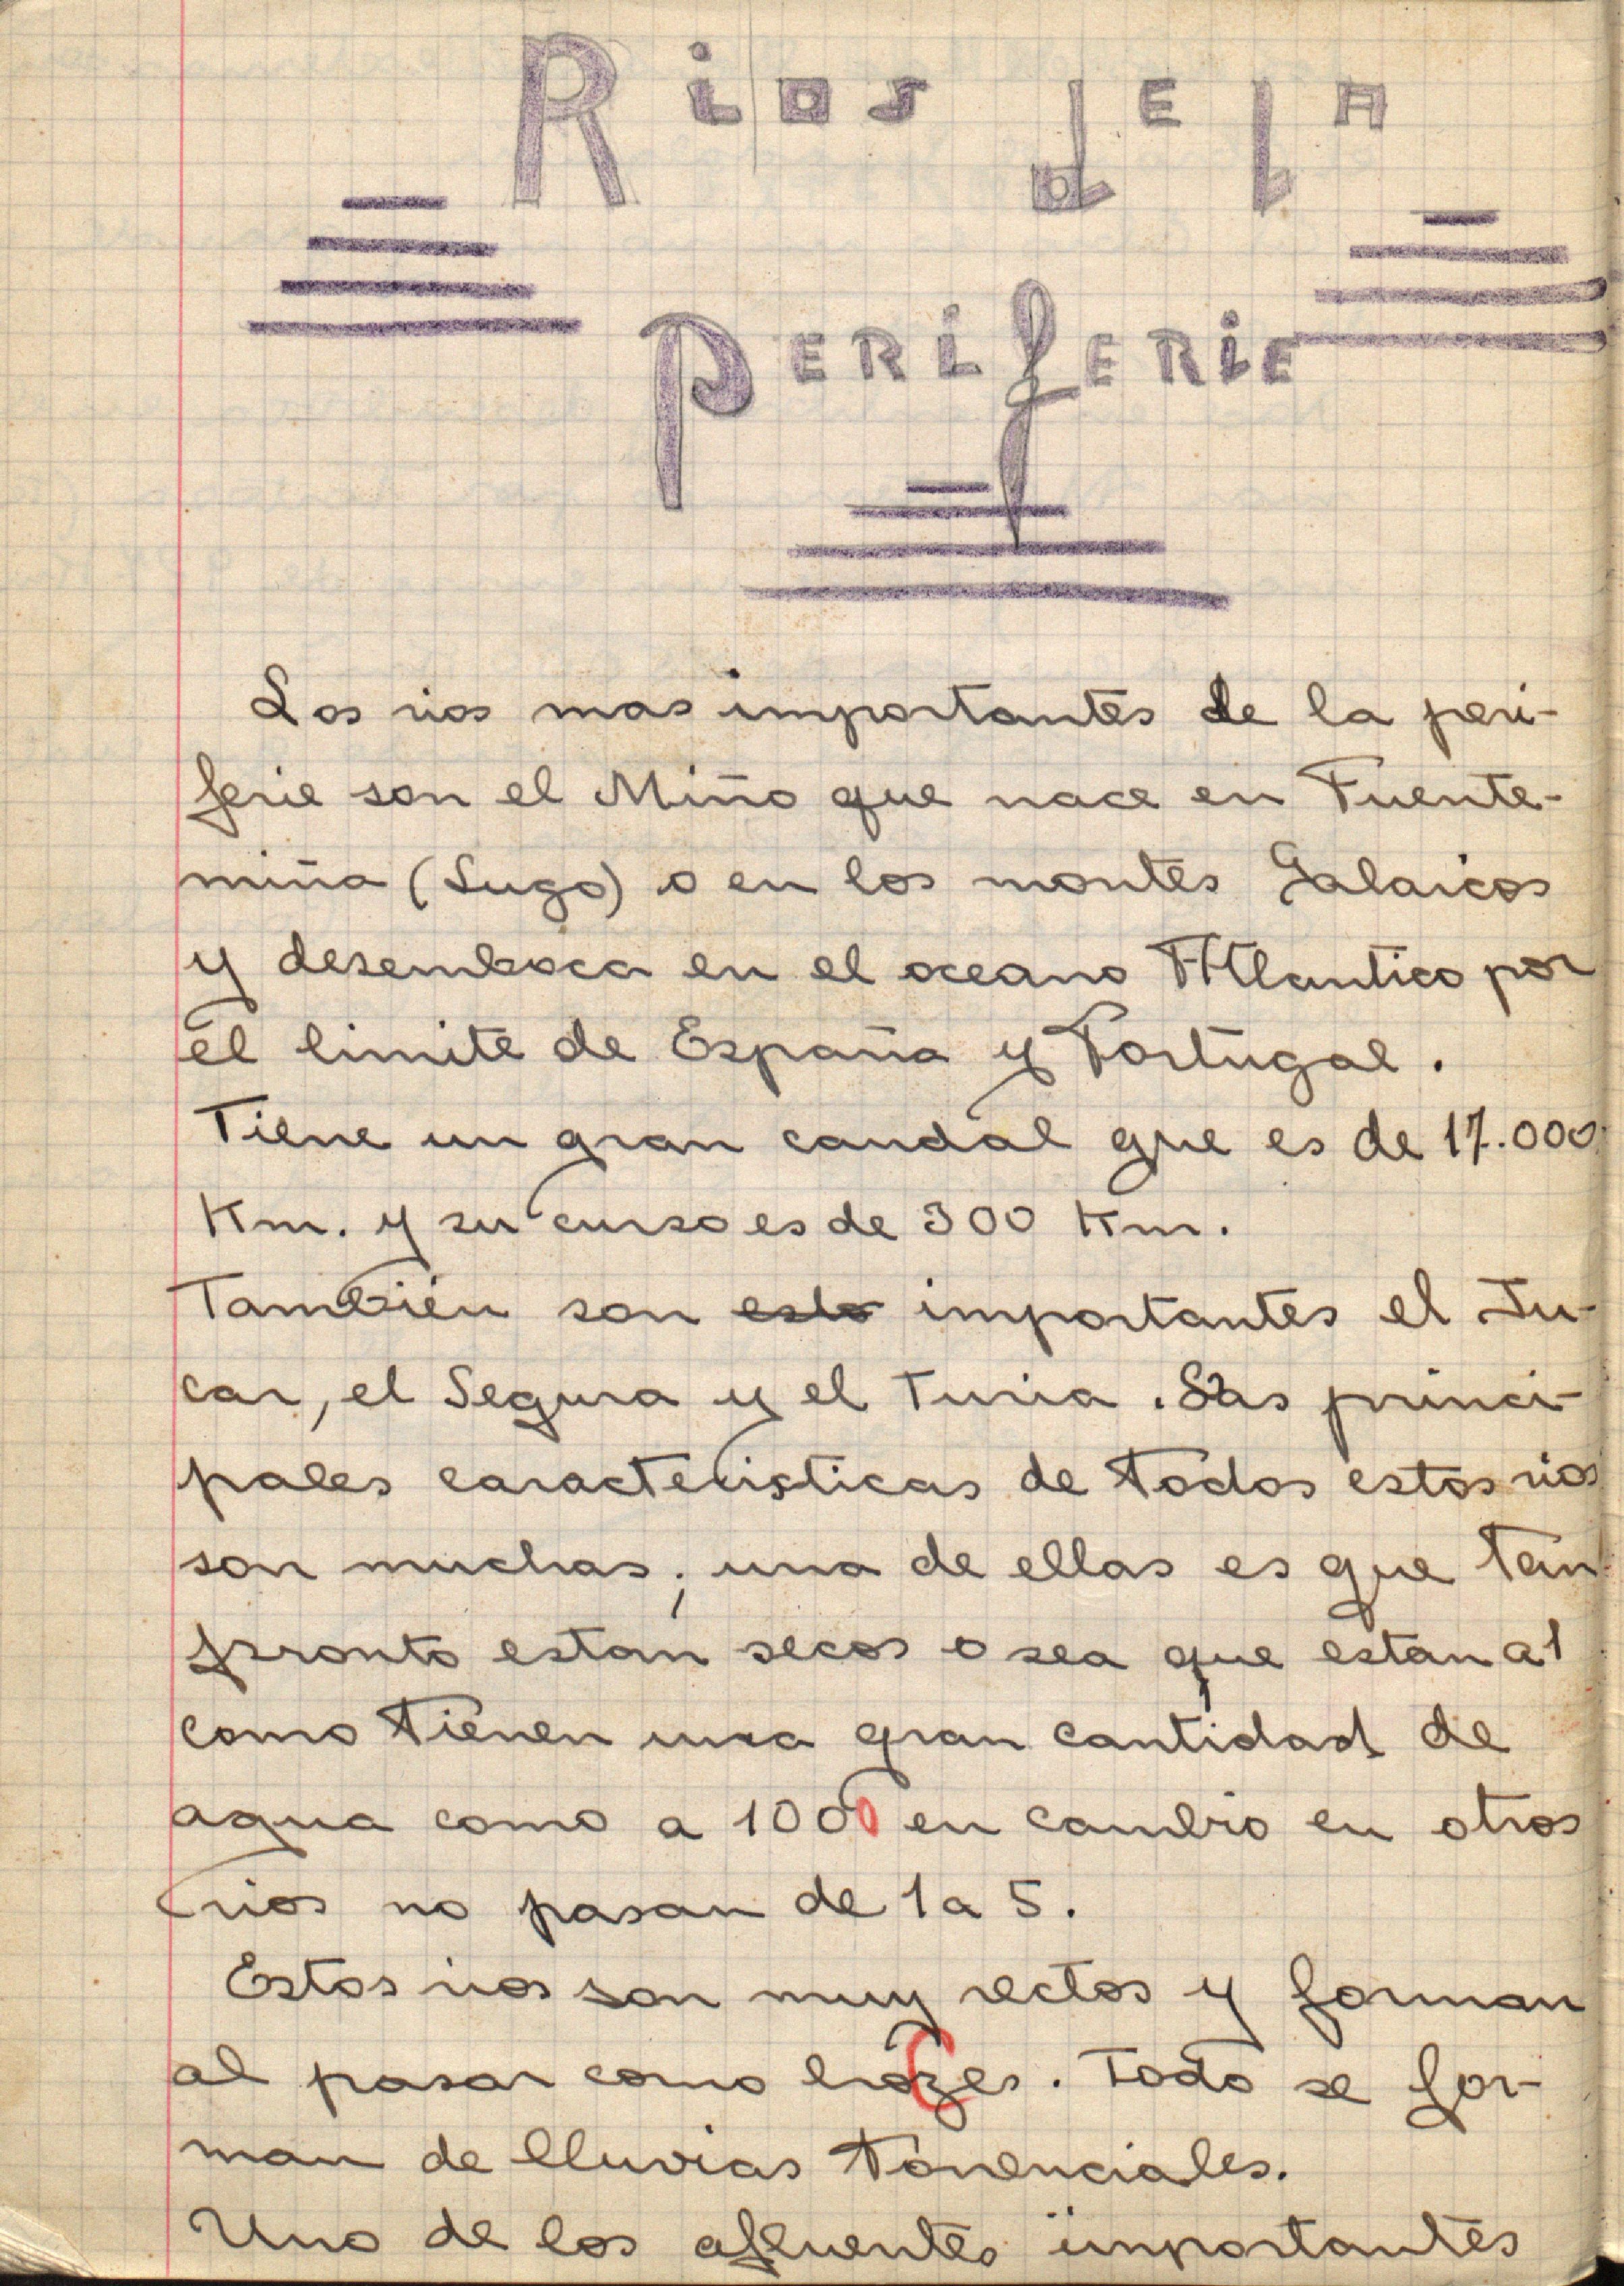 Rios de la
Periferie
Los rios mas importantes de la peri-
ferie son el Miño que nace en Fuente-
miña (Lugo) o en los montes Galaicos
y desemboca en el oceano Atlantico por
el limite de España y Portugal.
Tiene un gran caudal que es de 17.000
Km. y su curso es de 300 Km.
También son esto importantes el Ju-
car, el Segura y el Turia. Las princi-
pales caracteristicas de todos estos rios
son muchas; una de ellas es que tan
pronto estan secos o sea que estan a 1
como tienen una gran cantidad de
agua como a 1000 en cambio en otros
rios no pasan de 1 a 5.
Estos rios son muy rectos y forman
al pasar como hozes. Todo se for-
man de lluvias torrenciales.
Uno de los afluentes importantes